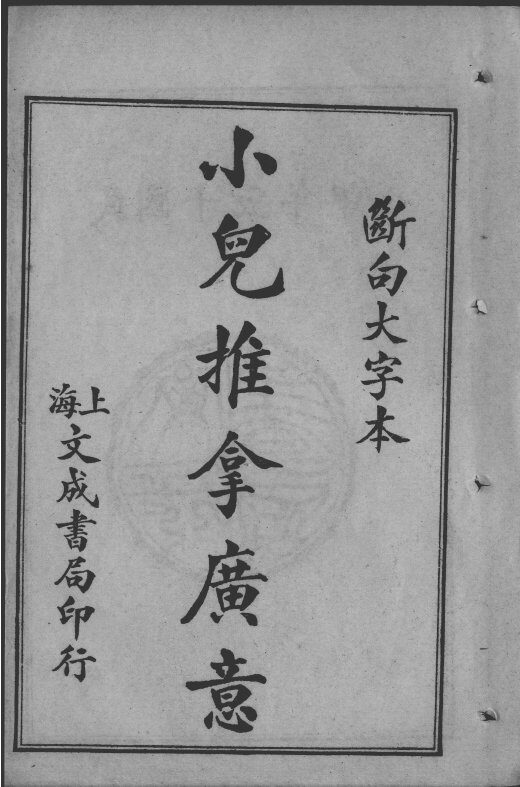 斷句大字本
小兒推拿廣意
上海文成書局印行